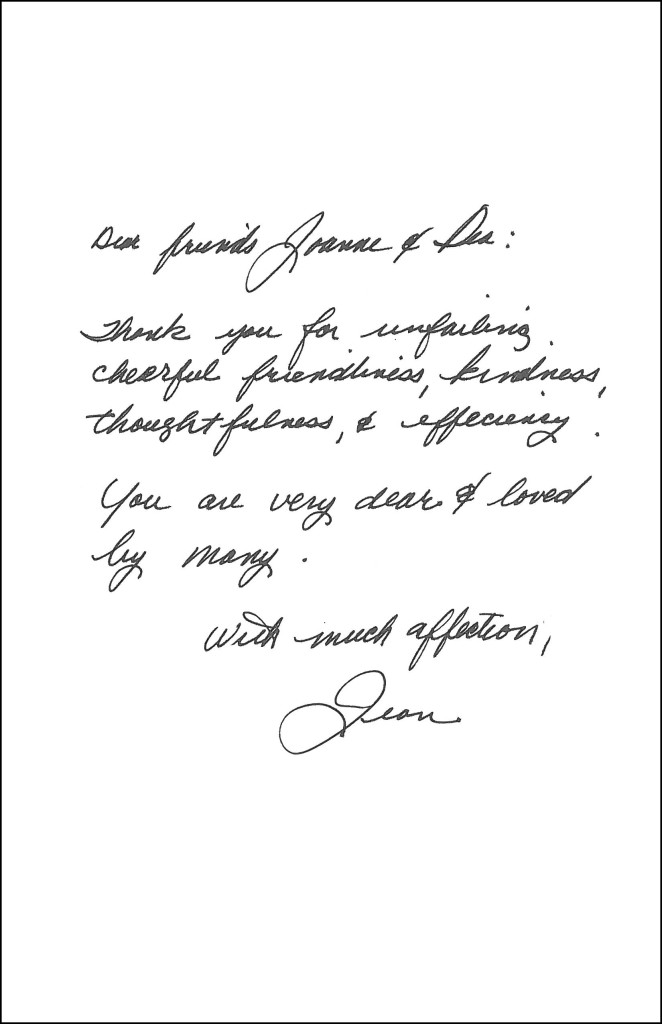 Dear friends Joanne &
Thank you for unfailing
cheerful friendliness, kindness,
thoughtfulness, & effeciency.
You are very dear & loved
by many.
With much affection,
Jean